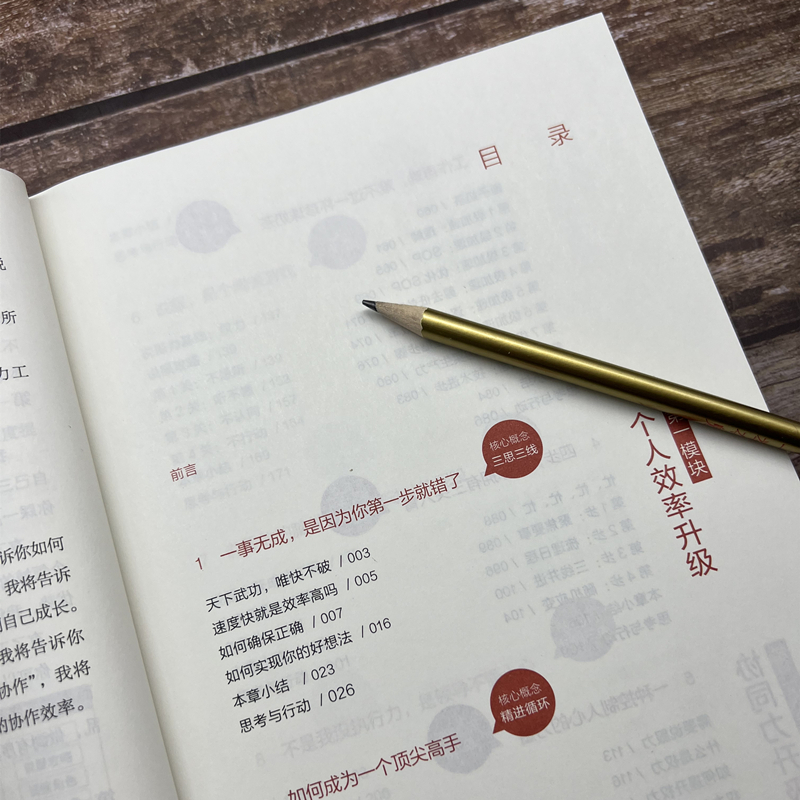 目 录
前言
第一模块
个人效率升级
核心概念
三思三线
1 一事无成，是因为你第一步就错了
天下武功，唯快不破 / 003
速度快就是效率高吗 / 005
如何确保正确 / 007
如何实现你的好想法 / 016
本章小结 / 023
思考与行动 / 026
核心概念
精进循环
如何成为一个顶尖高手
所
力工
诉你如何
我将告诉
自己成长。
我将告诉你
协作”，我将
的协作效率。